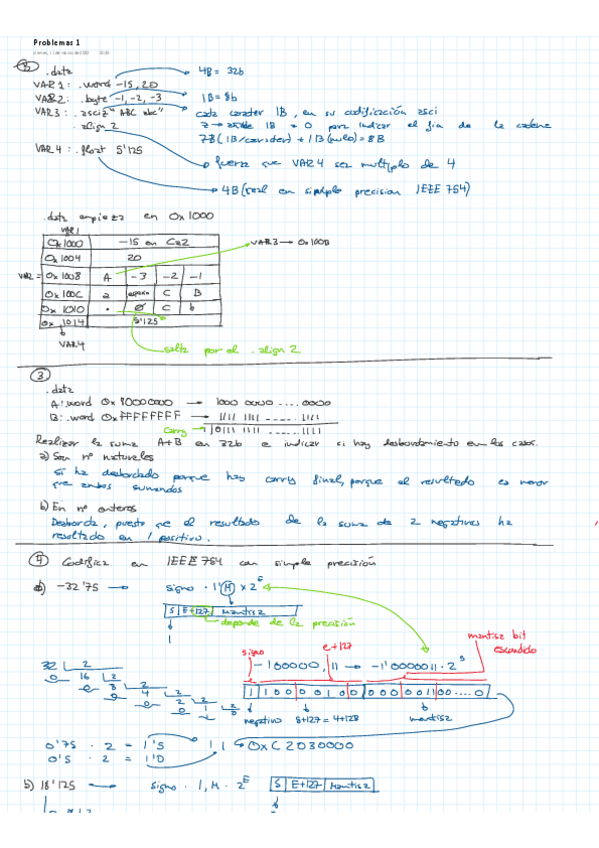 Problemas 1
.data
4B = 32b
VAR1: .word -15, 20
VAR2: .byte -1, -2, -3
1B = 8b
VAR3: .asciz "ABC abc"
cada caracter 1B, en su codificación asci
.align 2
z → añade 1B = 0 para indicar el fin de la cadena
7B (1B/caracter) + 1B (nulo) = 8B
VAR4: .float 5'125
fuerza que VAR4 sea multiplo de 4
4B (real en simple precision IEEE 754)
.data empieza en 0x1000
VAR1
0x1000 -15 en Ca2
VAR3 → 0x100B
0x1004 20
VAR2 = 0x1008 A -3 -2 -1
0x100C a espacio C B
0x1010 • Ø C b
0x1014 5'125
VAR4
salta por el .align 2
3
.data
A: .word 0x80000000 → 1000 0000 .... 0000
B: .word 0xFFFFFFFF → 1111 1111 ..... 1111
Carry 1|0111 1111 ..... 1111
Realizar la suma A+B en 32b e indicar si hay desbordamiento en los casos.
a) Son nº naturales
Si ha desbordado porque hay carry final, porque el resultado es menor
que ambos sumandos
b) En nº enteros
Desborda, puesto que el resultado de la suma de 2 negativos ha
resultado en 1 positivo.
4 Codifica en IEEE 754 con simple precisión
a) -32'75 → signo · 1'M x 2^E
S E+127 Mantisa
depende de la precisión
1
mantisa bit
escondido
signo e+127
-100000,11 → -1'0000011 · 2^5
32 2
0 16 2
0 8 2
0 4 2
0 2 2
0 1 2
1 100 0010 0 000 0011 00....0
negativo 5+127 = 4+128 mantisa
0'75 · 2 = 1'5 11 0xC2030000
0'5 · 2 = 1'0
b) 18'125 → signo · 1,M · 2^E S E+127 Mantisa